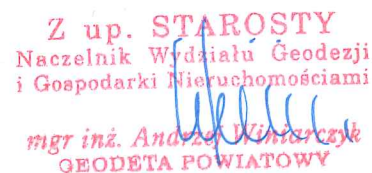 Z up. STAROSTY
Naczelnik Wydziału Geodezji
i Gospodarki Nieruchomościami
mgr inż. Andrzej Winiarczyk
GEODETA POWIATOWY